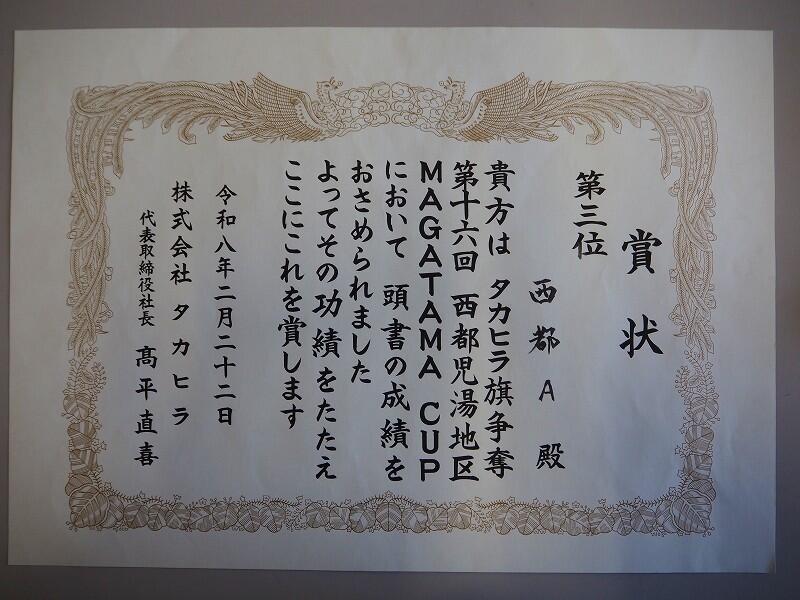 賞状
第三位
西都A 殿
貴方は タカヒラ旗争奪
第十六回 西都児湯地区
MAGATAMA CUP
において 頭書の成績を
おさめられました
よってその功績をたたえ
ここにこれを賞します
令和八年二月二十二日
株式会社 タカヒラ
代表取締役社長 髙平直喜